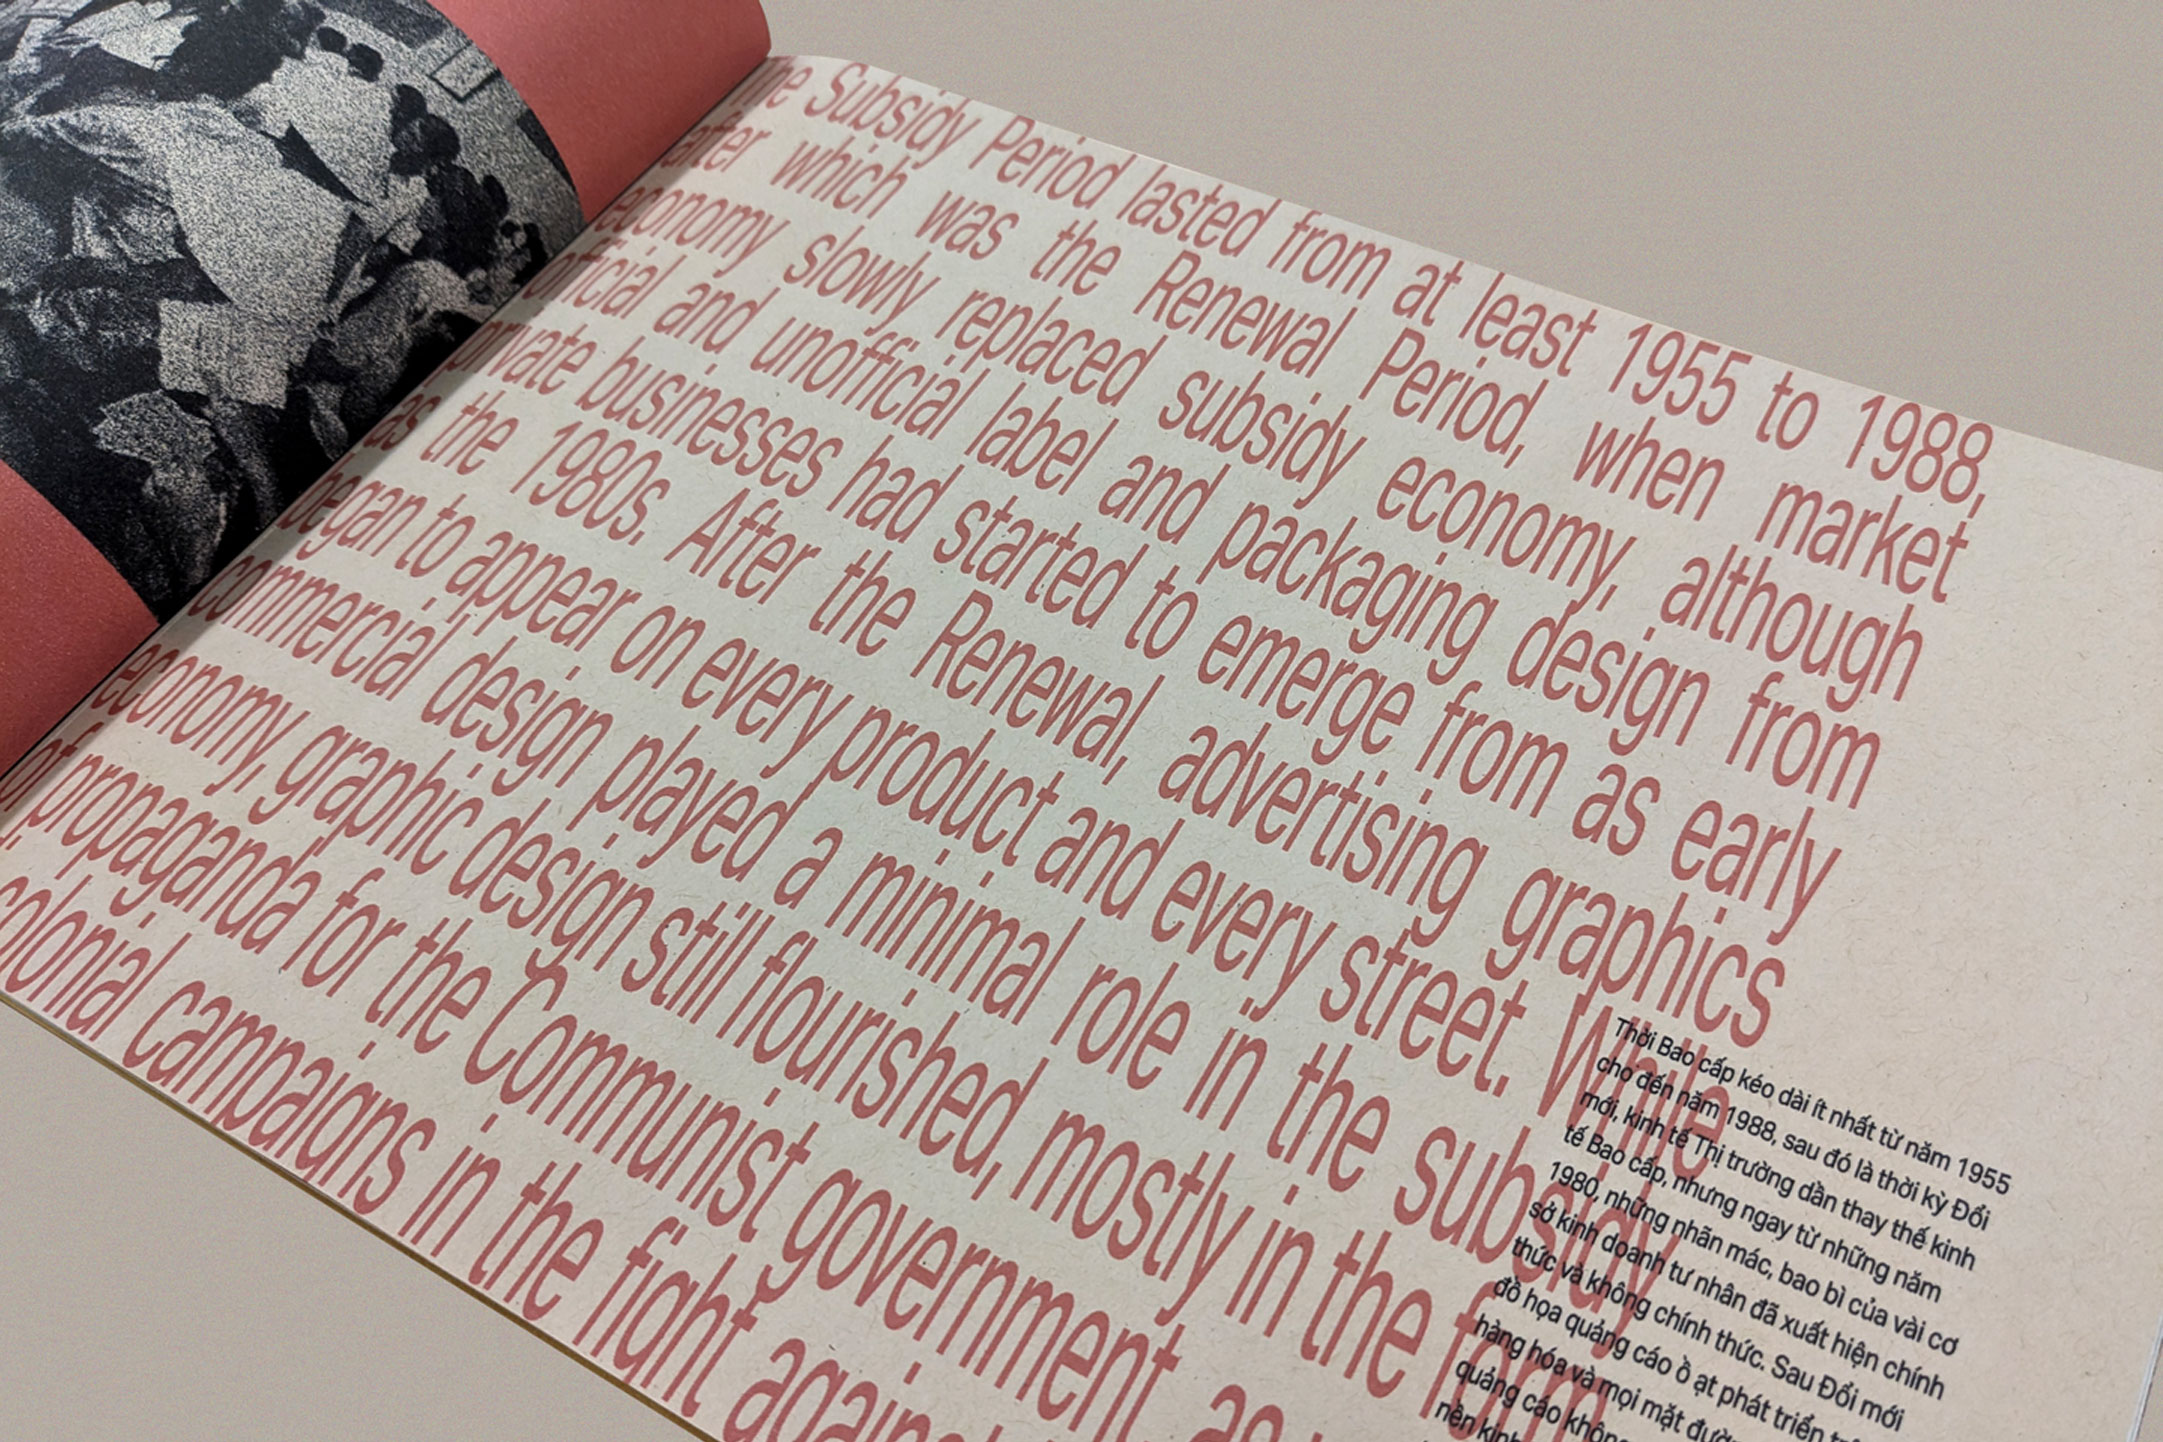 The Subsidy Period lasted from at least 1955 to 1988,
after which was the Renewal Period, when market
economy slowly replaced subsidy economy, although
official and unofficial label and packaging design from
private businesses had started to emerge from as early
as the 1980s. After the Renewal, advertising graphics
began to appear on every product and every street. While
commercial design played a minimal role in the subsidy
economy, graphic design still flourished, mostly in the form
of propaganda for the Communist government
colonial campaigns in the fight against
Thời Bao cấp kéo dài ít nhất từ năm 1955
cho đến năm 1988, sau đó là thời kỳ Đổi
mới, kinh tế Thị trường dần thay thế kinh
tế Bao cấp, nhưng ngay từ những năm
1980, những nhãn mác, bao bì của vài cơ
sở kinh doanh tư nhân đã xuất hiện chính
thức và không chính thức. Sau Đổi mới
đồ họa quảng cáo ồ ạt phát triển
hàng hóa và mọi mặt
quảng cáo không
nền